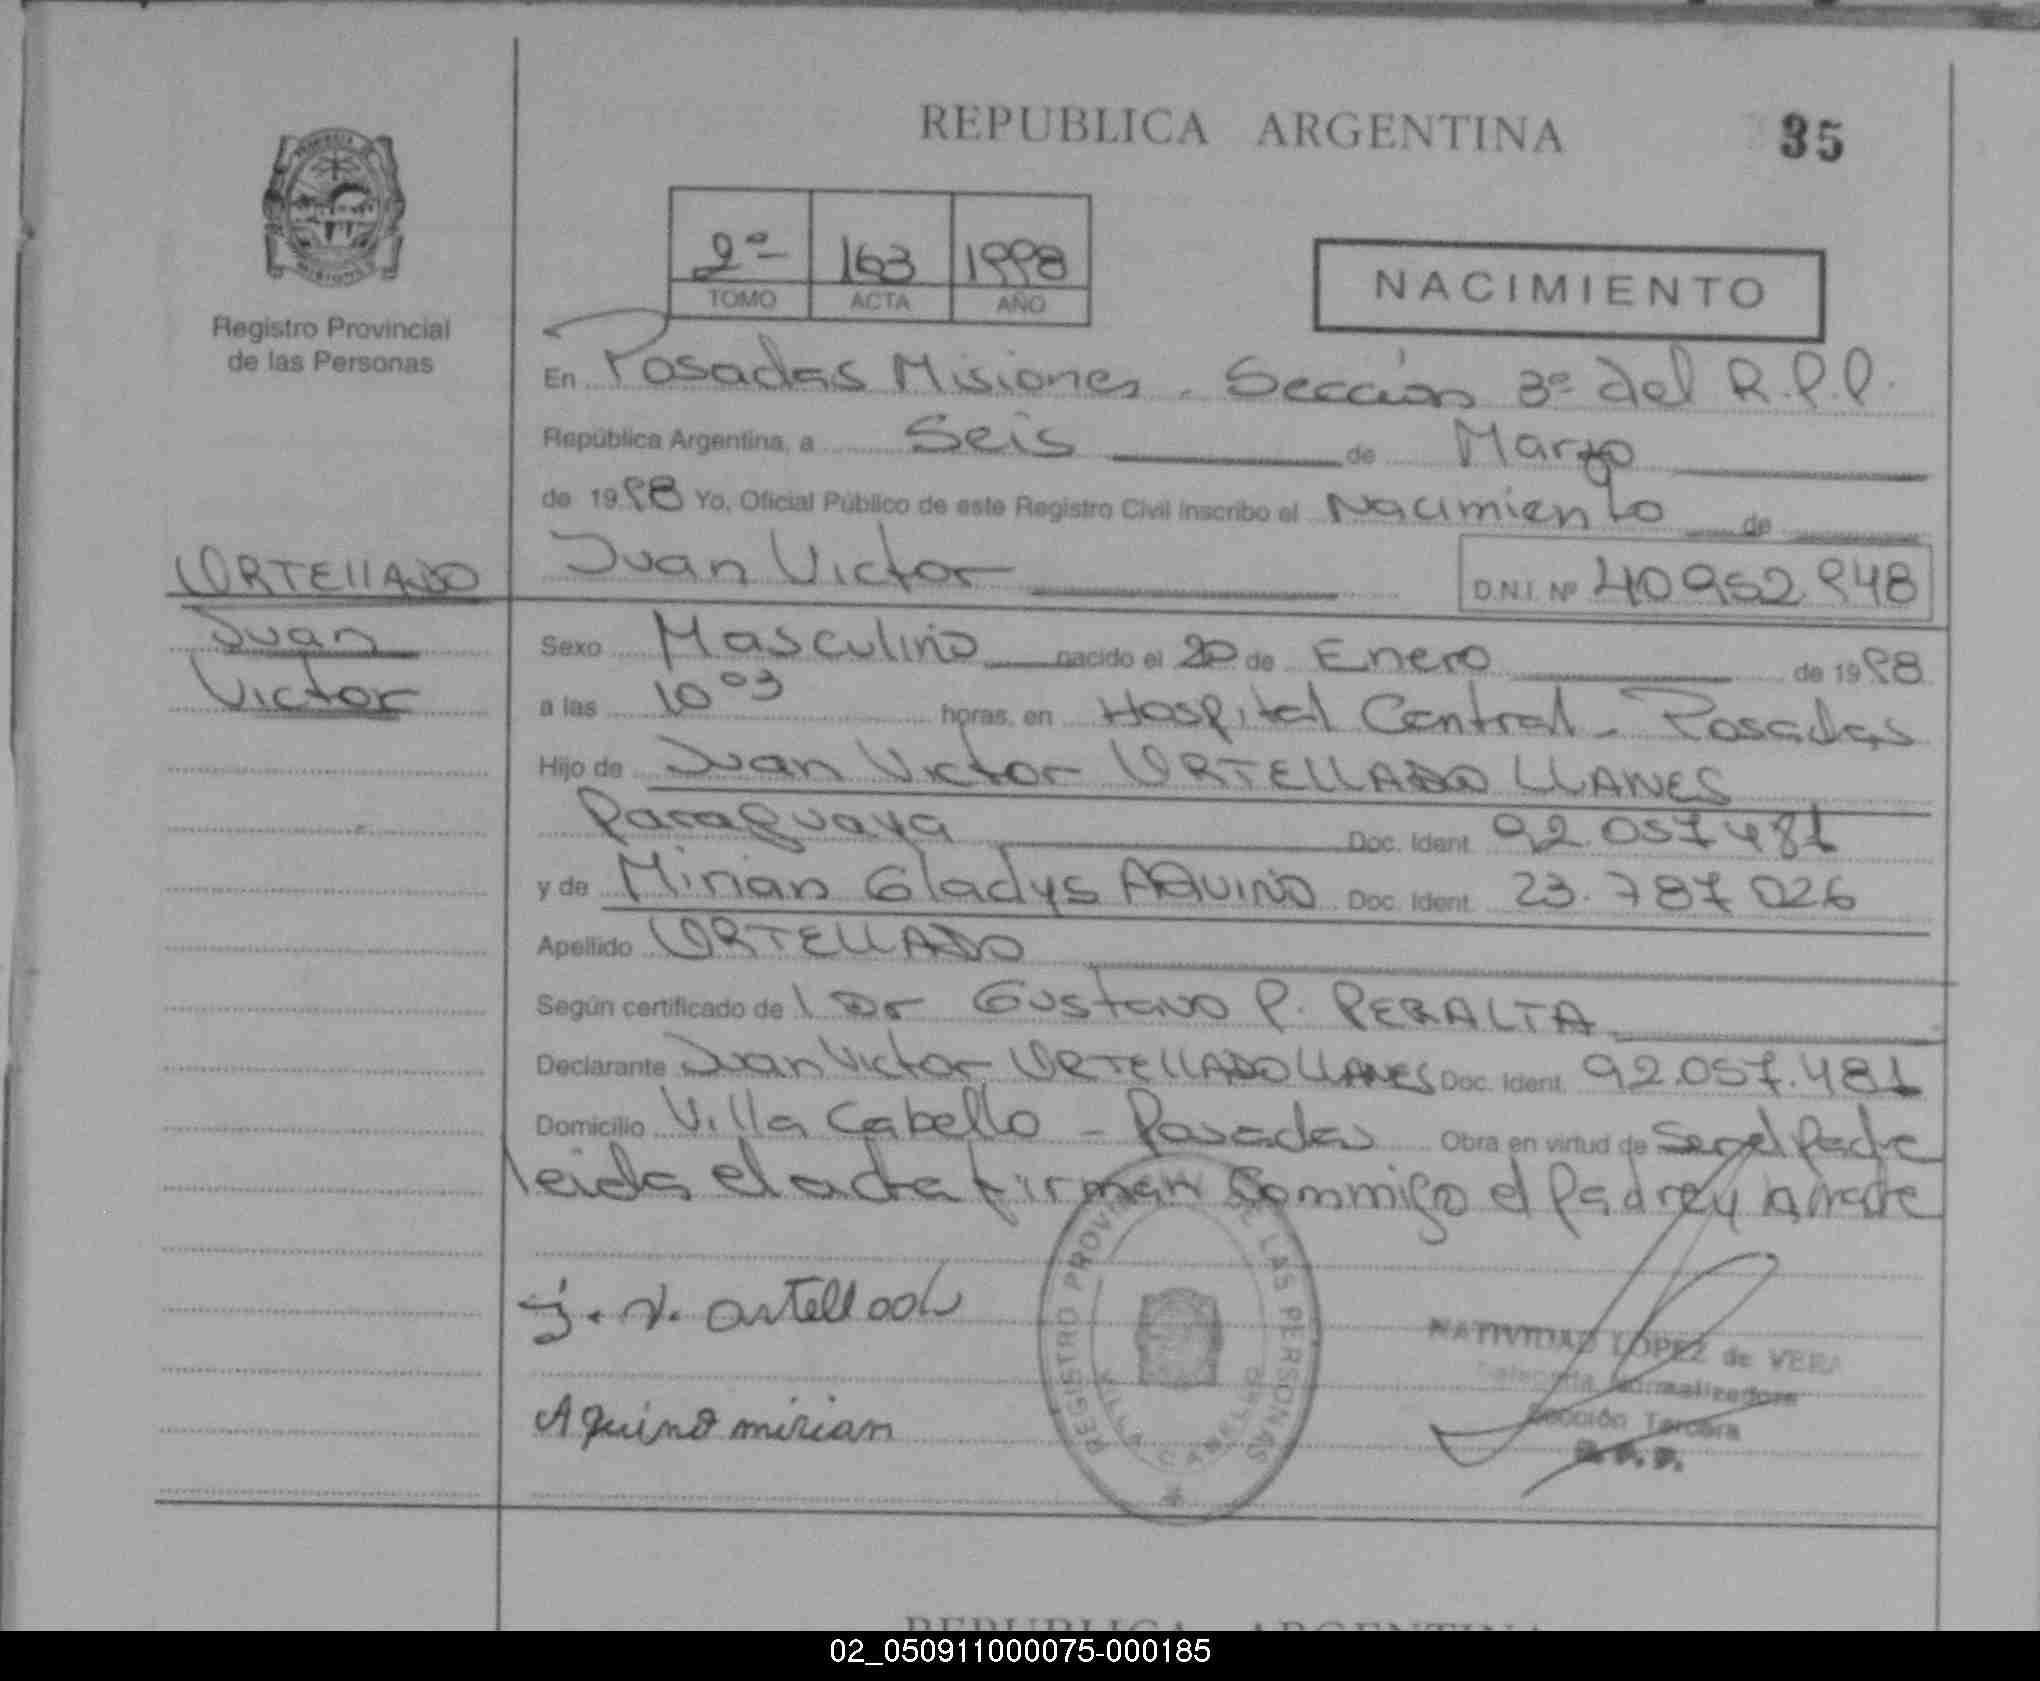 REPUBLICA ARGENTINA
35
2º 163 1998
TOMO ACTA AÑO
NACIMIENTO
Registro Provincial
de las Personas
En Posadas Misiones - Sección 3ª del R.P.P.
República Argentina, a Seis de Marzo
de 1998 Yo, Oficial Público de este Registro Civil inscribo el Nacimiento de
URTELLADO
Juan Victor D.N.I. Nº 40952948
Juan
Victor
Sexo Masculino nacido el 20 de Enero de 1998
a las 10 03 horas, en Hospital Central - Posadas
Hijo de Juan Victor URTELLADO LLANES
Paraguaya Doc. Ident. 92.057481
y de Mirian Gladys AQUINO Doc. Ident. 23.787026
Apellido URTELLADO
Según certificado de l Dr Gustavo P. PERALTA
Declarante Juan Victor URTELLADO LLANES Doc. Ident. 92.057.481
Domicilio Villa Cabello - Posadas Obra en virtud de Ser el Padre
leida el acta firman commigo el Padre y la madre
Aquino mirian
REGISTRO PROVINCIAL DE LAS PERSONAS
VILLA CABELLO
NATIVIDAD LOPEZ de VERA
Delegada Normalizadora
Sección Tercera
R.P.P.
REPUBLICA ARGENTINA
02_050911000075-000185